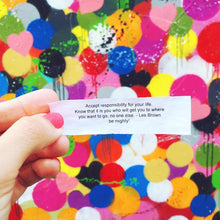 'Accept responsibility for your life.
Know that it is you who will get you to where
you want to go, no one else. - Les Brown
be mighty!